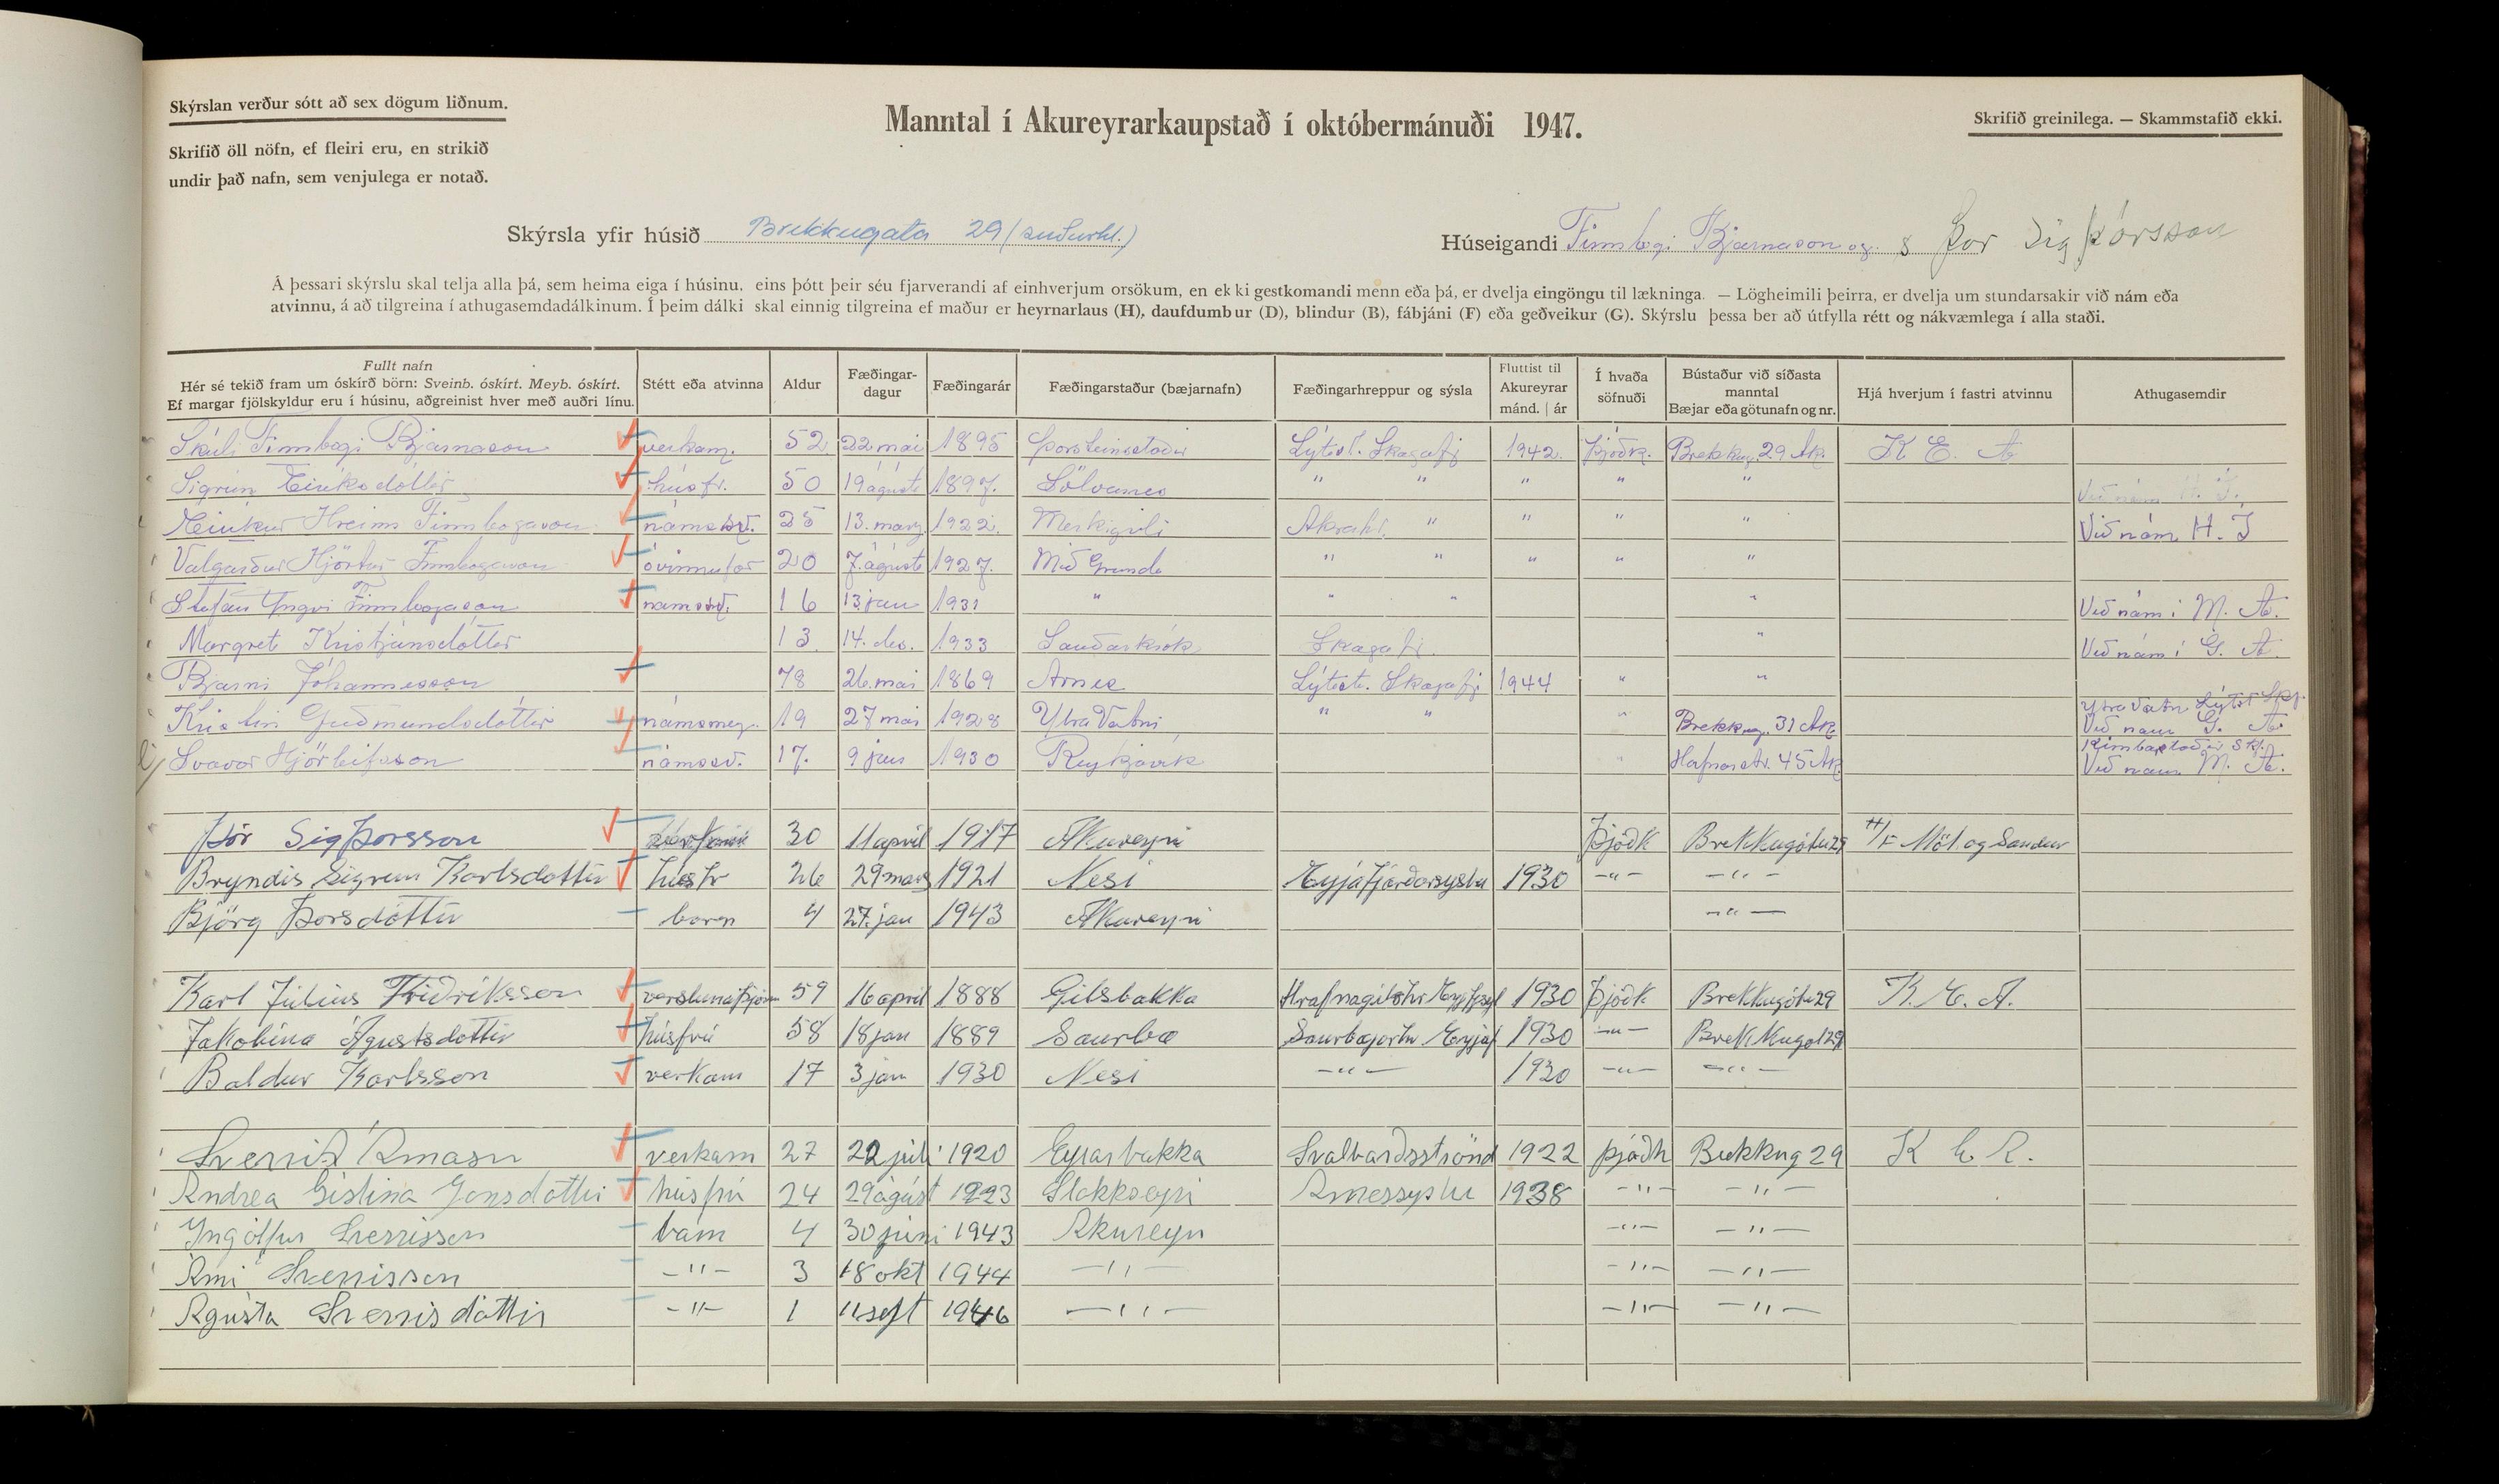 Skýrslan verður sótt að sex dögum liðnum.
Skrifið öll nöfn, ef fleiri eru, en strikið
undir það nafn, sem venjulega er notað.
Manntal í Akureyrarkaupstað í októbermánuði 1947.
Skrifið greinilega. — Skammstafið ekki.
Skýrsla yfir húsið Brekkugata 29 (suðurhl.)
Húseigandi Finnbogi Bjarnason og Þór Sigþórsson
Á þessari skýrslu skal telja alla þá, sem heima eiga í húsinu, eins þótt þeir séu fjarverandi af einhverjum orsökum, en ekki gestkomandi menn eða þá, er dvelja eingöngu til lækninga. — Lögheimili þeirra, er dvelja um stundarsakir við nám eða
atvinnu, á að tilgreina í athugasemdadálkinum. Í þeim dálki skal einnig tilgreina ef maður er heyrnarlaus (H), daufdumbur (D), blindur (B), fábjáni (F) eða geðveikur (G). Skýrslu þessa ber að útfylla rétt og nákvæmlega í alla staði.
Fullt nafn Hér sé tekið fram um óskírð börn: Sveinb. óskírt. Meyb. óskírt. Ef margar fjölskyldur eru í húsinu, aðgreinist hver með auðri línu. Stétt eða atvinna Aldur Fæðingardagur Fæðingarár Fæðingarstaður (bæjarnafn) Fæðingarhreppur og sýsla Fluttist til Akureyrar mánd. | ár Í hvaða söfnuði Bústaður við síðasta manntal Bæjar eða götunafn og nr. Hjá hverjum í fastri atvinnu Athugasemdir
Skúli Finnbogi Bjarnason verkam. 52 22 mai 1895 Þorsteinsstaðir Lýtst. Skagafj 1942. Þjóðk. Brekkug. 29 Ak. K E. A
Sigrún Eiríksdóttir húsfr. 50 19 ágúst 1897. Sölvanes " " " " "
Eiríkur Hreinn Finnbogason námssv. 25 13. marz 1922. Merkigili Akrahr. " " " " Við nám H. Í
Valgarður Hjörtur Finnbogason óvinnufær 20 7. ágúst 1927. Mið Grund " " " " "
Stefán Yngvi Finnbogason námssv. 16 13. jan 1931 " " " " Við nám í M. A.
Margret Kristjánsdóttir 13 14. des. 1933 Sauðárkrók Skagafj. " Við nám í G. A.
Bjarni Jóhannesson 78 26. mai 1869 Árnes Lýtst. Skagafj 1944 " "
Kristín Guðmundsdóttir námsmey. 19 27 mai 1928 Ytra Vatni " " " Brekkug. 31 Ak. Ytra Vatn Lýtst Skg. Við nám G. A.
Svavar Hjörleifsson námssv. 17. 9 jan 1930 Reykjavík " Hafnarstr. 45 Ak. Kimbastaðir Sk. Við nám M. A.
Þór Sigþorsson 30 11 april 1917 Akureyri Þjóðk Brekkugötu 29 H/F Möl og Sandur
Bryndis Sigrun Karlsdottir húsfr 26 29 mars 1921 Nesi Eyjafjarðarsyslu 1930 -"- -"-
Björg Þorsdottir barn 4 27. jan 1943 Akureyri -"-
Karl Júlíus Friðriksson verslunarþjónn 59 16 april 1888 Gilsbakka Hrafnagilshr Eyjfsysl 1930 Þjóðk Brekkugötu 29 K. E. A.
Jakobína Ágústsdottir húsfrú 58 18 jan 1889 Saurbæ Saurbæjarhr Eyjaf 1930 -"- Brekkugöt 29
Baldur Karlsson verkam 17 3 jan 1930 Nesi -"- 1930 -"- -"-
Sverrir Árnason verkam 27 22 júlí 1920 Eyrarbakka Svalbarðsströnd 1922 þjóðk Brekkug 29 K E A.
Andrea Gistina Jonsdottir húsfrú 24 29 ágúst 1923 Stokkseyri Árnessyslu 1938 -"- -"-
Ingólfur Sverrisson barn 4 30 júní 1943 Akureyri -"- -"-
Árni Sverrisson -"- 3 18 okt 1944 -"- -"- -"-
Ágústa Sverrisdóttir -"- 1 11 sept 1946 -"- -"- -"-